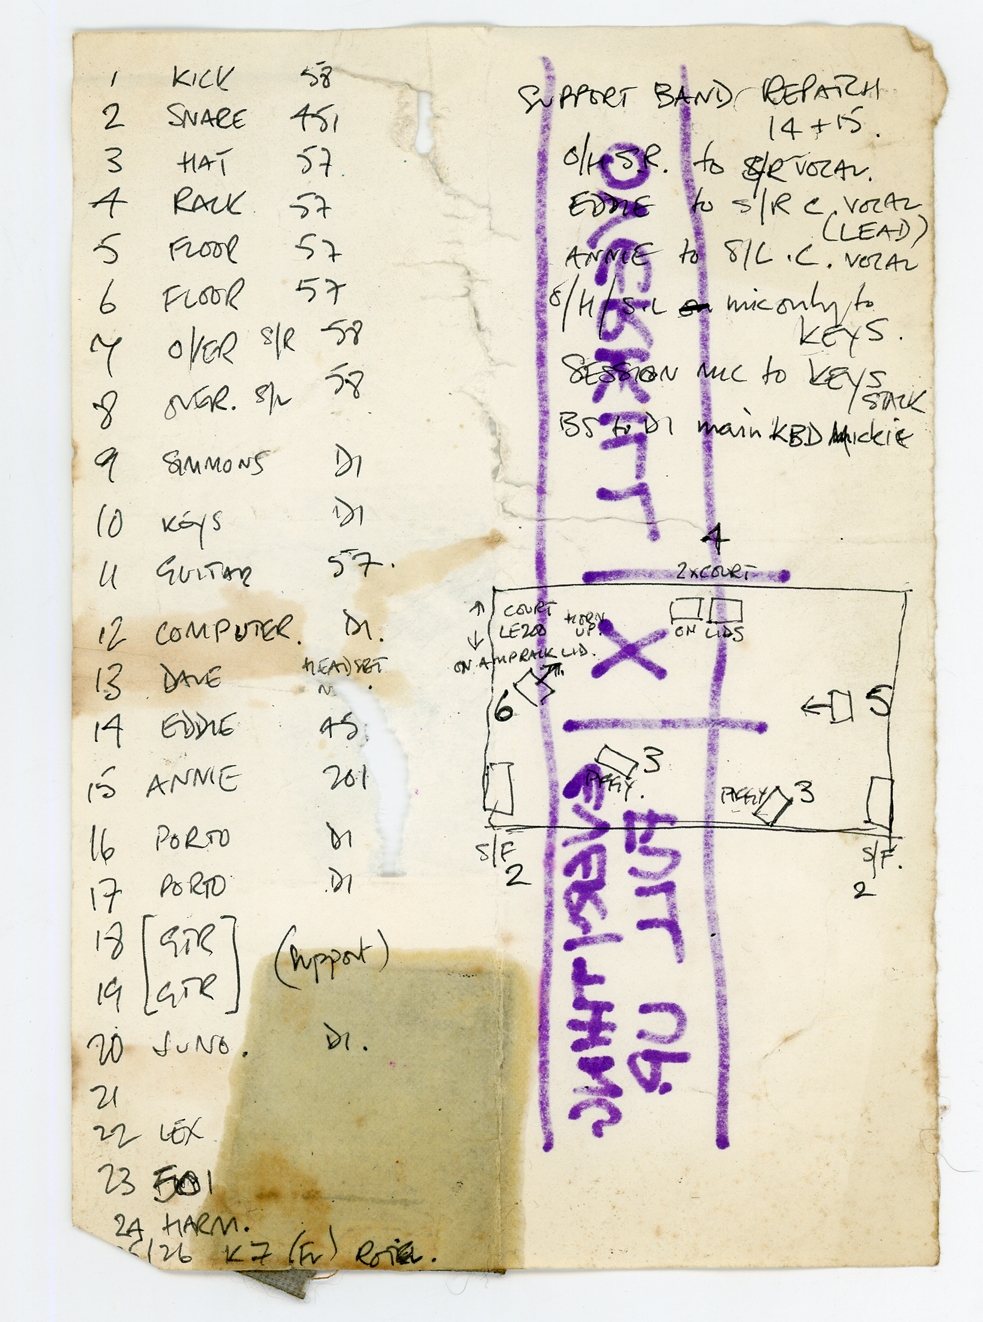 1 KICK 58
2 SNARE 451
3 HAT 57
4 RACK 57
5 FLOOR 57
6 FLOOR 57
7 O/VER S/R 58
8 OVER. S/L 58
9 SIMMONS DI
10 KEYS DI
11 GUITAR 57.
12 COMPUTER. DI.
13 DAVE HEADSET
14 EDDIE AS
15 ANNIE 201
16 PORTO DI
17 PORTO DI
18 [GTR]
19 [GTR]
(Support)
20 JUNO. DI.
21
22 LEX
23 501
24 HARM.
/26 K7 (Fr)
SUPPORT BAND REPATCH
14 + 15.
O/H S.R. to S/R VOCAL.
EDDIE to S/R C. VOCAL
(LEAD)
ANNIE to S/L.C. VOCAL
O/H/S.L mic only to
KEYS.
SESSION MIC to KEYS
STACK
BS to DI main KBD Mickie
4
2xCOURT
COURT
LE200
HORN
UP.
ON AMPRACK LID.
ON LIDS
6
5
3
PIGGY.
PIGGY 3
S/F
2
S/F.
2
X